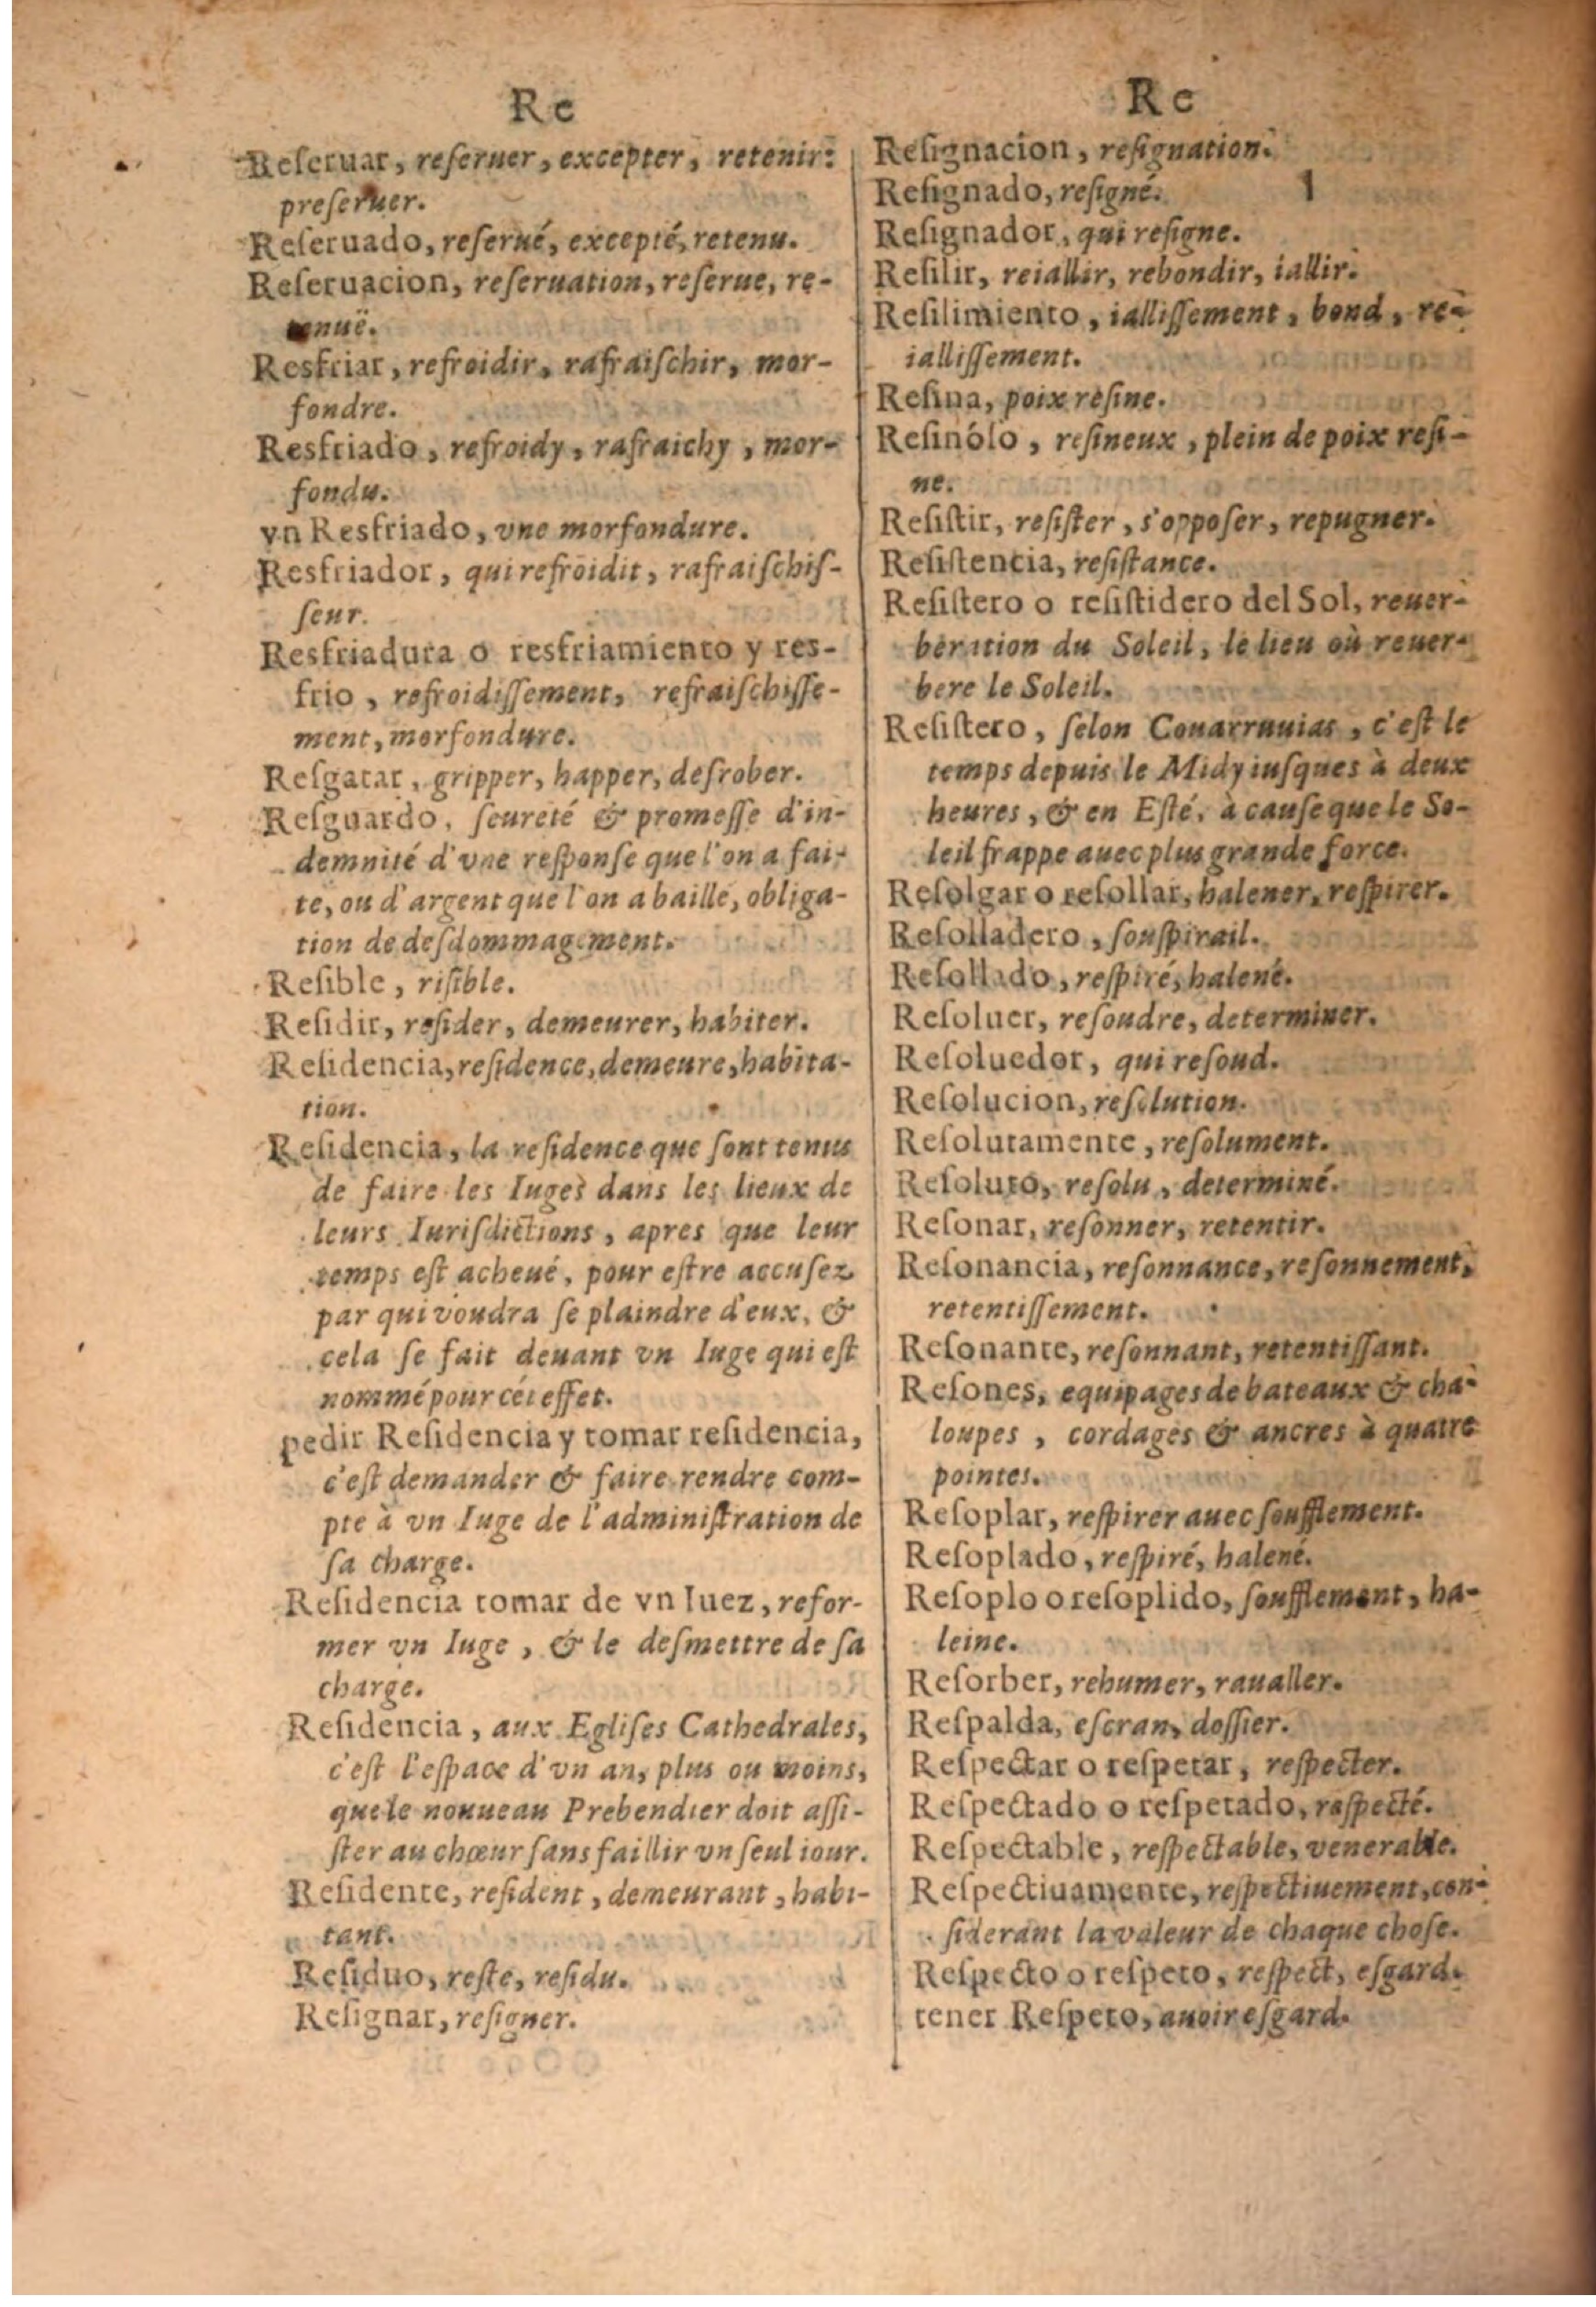 Re
Reſeruar, reſeruer, excepter, retenir:
preſeruer.
Reſeruado, reſerué, excepté, retenu.
Reſeruacion, reſeruation, reſerue, re-
tenuë.
Resfriar, refroidir, rafraiſchir, mor-
fondre.
Resfriado, refroidy, rafraichy, mor-
fondu.
vn Resfriado, vne morfondure.
Resfriador, qui refroidit, rafraiſchiſ-
ſeur.
Resfriadura o resfriamiento y res-
frio, refroidiſſement, refraiſchiſſe-
ment, morfondure.
Reſgatar, gripper, happer, deſrober.
Reſguardo, ſeureté & promeſſe d'in-
demnité d'vne reſponſe que l'on a fai-
te, ou d'argent que l'on a baillé, obliga-
tion de deſdommagement.
Reſible, riſible.
Reſidir, reſider, demeurer, habiter.
Reſidencia, reſidence, demeure, habita-
tion.
Reſidencia, la reſidence que ſont tenus
de faire les Iuges dans les lieux de
leurs Iuriſdictions, apres que leur
temps eſt acheué, pour eſtre accuſez
par qui voudra ſe plaindre d'eux, &
cela ſe fait deuant vn Iuge qui eſt
nommé pour cét effet.
pedir Reſidencia y tomar reſidencia,
c'eſt demander & faire rendre com-
pte à vn Iuge de l'adminiſtration de
ſa charge.
Reſidencia tomar de vn Iuez, refor-
mer vn Iuge, & le deſmettre de ſa
charge.
Reſidencia, aux Egliſes Cathedrales,
c'eſt l'eſpace d'vn an, plus ou moins,
que le nouueau Prebendier doit aſſi-
ſter au chœur ſans faillir vn ſeul iour.
Reſidente, reſident, demeurant, habi-
tant.
Reſiduo, reſte, reſidu.
Reſignar, reſigner.
Re
Reſignacion, reſignation.
Reſignado, reſigné.
Reſignador, qui reſigne.
Reſilir, reiallir, rebondir, iallir.
Reſilimiento, ialliſſement, bond, re-
ialliſſement.
Reſina, poix reſine.
Reſinóſo, reſineux, plein de poix reſi-
ne.
Reſiſtir, reſiſter, s'oppoſer, repugner.
Reſiſtencia, reſiſtance.
Reſiſtero o reſiſtidero del Sol, reuer-
beration du Soleil, le lieu où reuer-
bere le Soleil.
Reſiſtero, ſelon Couarruuias, c'eſt le
temps depuis le Midy iuſques à deux
heures, & en Eſté, à cauſe que le So-
leil frappe auec plus grande force.
Reſolgar o reſollar, halener, reſpirer.
Reſolladero, ſouſpirail.
Reſollado, reſpiré, halené.
Reſoluer, reſoudre, determiner.
Reſoluedor, qui reſoud.
Reſolucion, reſolution.
Reſolutamente, reſolument.
Reſoluto, reſolu, determiné.
Reſonar, reſonner, retentir.
Reſonancia, reſonnance, reſonnement,
retentiſſement.
Reſonante, reſonnant, retentiſſant.
Reſones, equipages de bateaux & cha-
loupes, cordages & ancres à quatre
pointes.
Reſoplar, reſpirer auec ſoufflement.
Reſoplado, reſpiré, halené.
Reſoplo o reſoplido, ſoufflement, ha-
leine.
Reſorber, rehumer, raualler.
Reſpalda, eſcran, doſſier.
Reſpectar o reſpetar, reſpecter.
Reſpectado o reſpetado, reſpecté.
Reſpectable, reſpectable, venerable.
Reſpectiuamente, reſpectiuement, con-
ſiderant la valeur de chaque choſe.
Reſpecto o reſpeto, reſpect, eſgard.
tener Reſpeto, auoir eſgard.